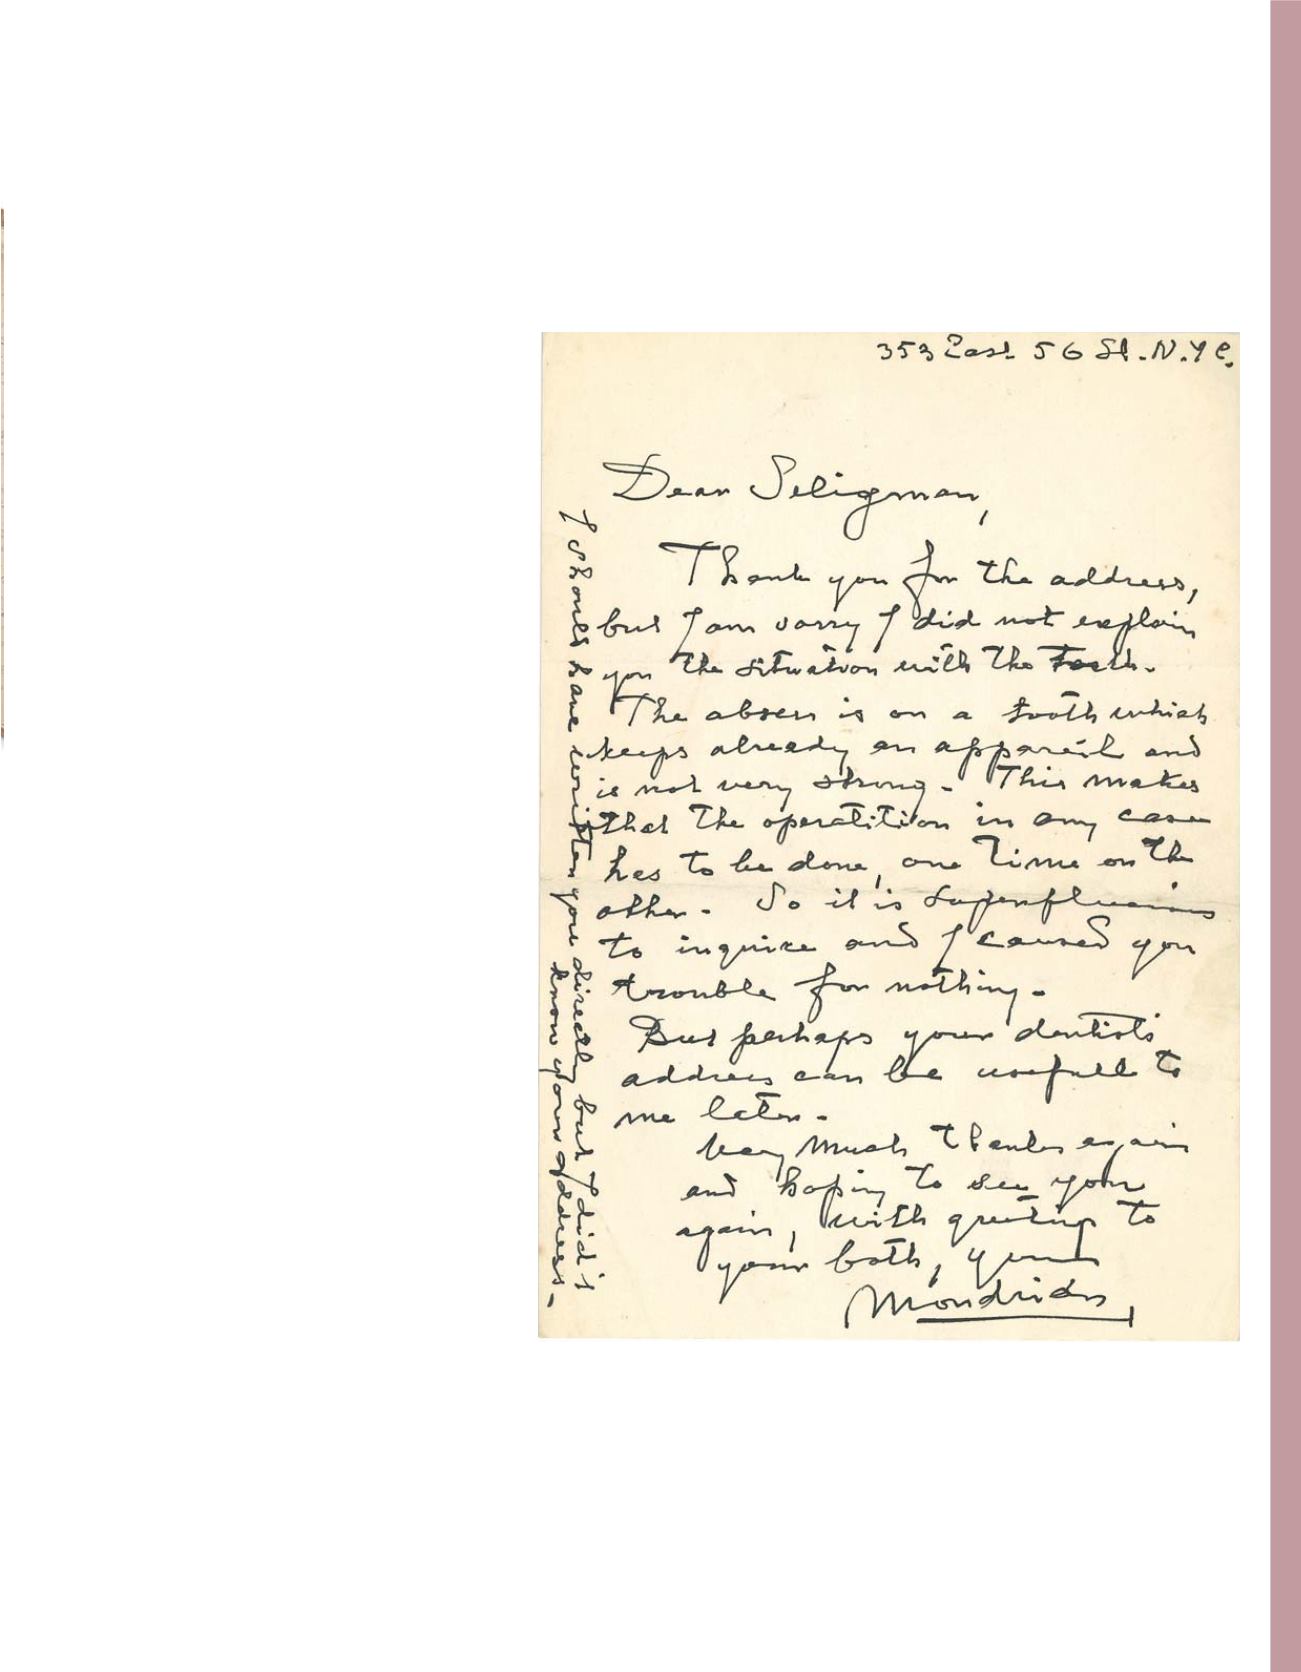 353 East 56 St. N.Y C.
Dear Seligman,
Thank you for the address,
but I am sorry I did not explain
you the situation with the teeth.
The absess is on a tooth which
keeps already an appareil and
is not very strong. This makes
that the operatition in any case
has to be done, one time on the
other. So it is
to inquire and I caused you
trouble for nothing.
But perhaps your dentists
address can be usefull to
me later.
Very much thanks again
and hoping to see your
again, with greetings to
your both, yours
Mondrian,
I should have written you directly but I did't
know your address.